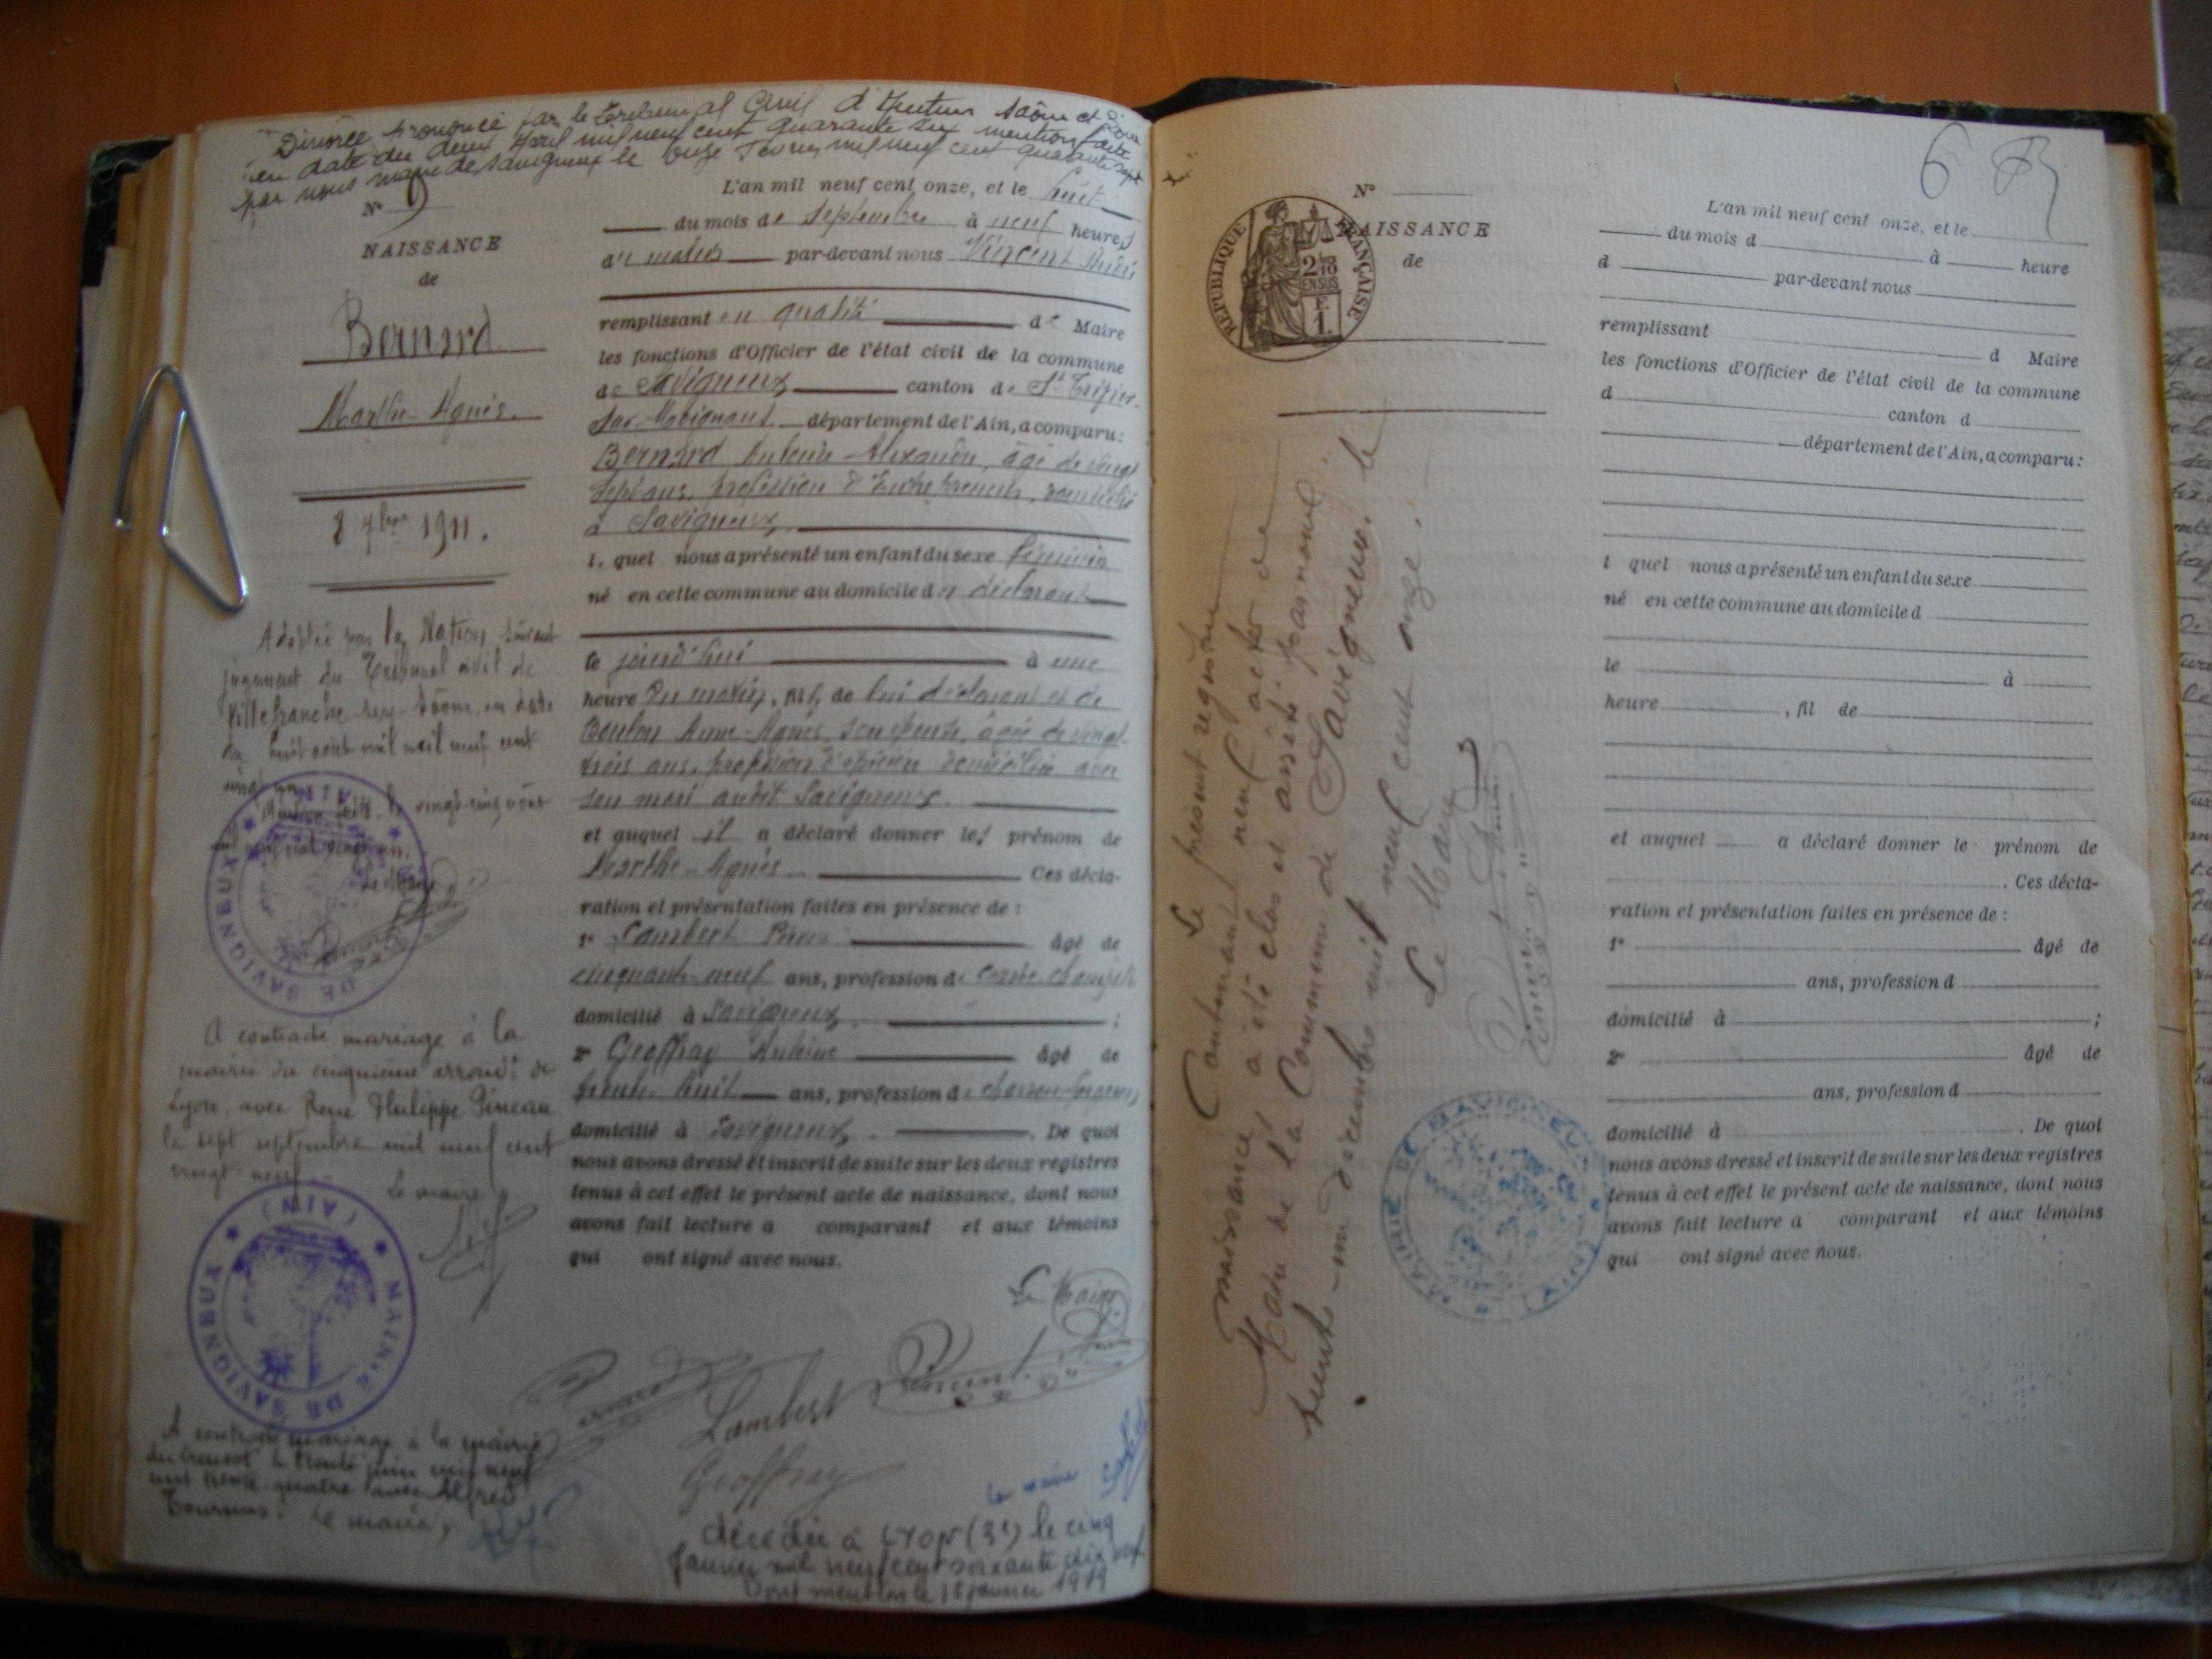 Divorce prononcé par le Tribunal Civil d'Autun Saône et Loire
en date du deux Avril mil neuf cent quarante six mention faite
par nous maire de Savigneux le onze Février mil neuf cent quarante sept
N° 9
NAISSANCE
de
Bernard
Marthe-Agnès.
8 7bre 1911.
Adoptée par la Nation suivant
jugement du Tribunal civil de
Villefranche sur-Saône, en date
du huit août mil neuf cent
vingt un.
Mention faite, le vingt-cinq août
mil neuf cent vingt un.
Le Maire
MAIRIE DE SAVIGNEUX (AIN)
A contracté mariage à la
mairie du cinquième arrond.t de
Lyon avec René Philippe Pineau
le sept septembre mil neuf cent
vingt neuf
Le maire
MAIRIE DE SAVIGNEUX (AIN)
A contracté mariage à la mairie
du Creusot le trente juin mil neuf
cent trente quatre avec Alfred
Tournus. Le maire,
L'an mil neuf cent onze, et le huit
du mois de septembre à neuf heures
du matin par-devant nous Vincent André
remplissant en qualité de Maire
les fonctions d'Officier de l'état civil de la commune
de Savigneux canton de St Trivier-
sur-Moignans département de l'Ain, a comparu:
Bernard Antoine-Alexandre, âgé de vingt
sept ans, profession d'Entrepreneur, domicilié
à Savigneux
lequel nous a présenté un enfant du sexe féminin
né en cette commune au domicile du déclarant
le jourd'hui à une
heure du matin, fil de lui déclarant et de
Boulon Anne-Agnès, son épouse, âgée de vingt-
trois ans, profession d'épicière domiciliée avec
son mari audit Savigneux.
et auquel il a déclaré donner les prénom de
Marthe-Agnès Ces décla-
ration et présentation faites en présence de :
1° Lambert Pierre âgé de
cinquante-neuf ans, profession de garde-champêtre
domicilié à Savigneux ;
2° Geoffray Antoine âgé de
trente-huit ans, profession de charron-forgeron
domicilié à Savigneux. De quoi
nous avons dressé et inscrit de suite sur les deux registres
tenus à cet effet le présent acte de naissance, dont nous
avons fait lecture a comparant et aux témoins
qui ont signé avec nous.
Le Maire
Bernard
Lambert
Vincent
Geoffray
le maire
décédée à LYON (3e) le cinq
Janvier mil neuf cent soixante dix neuf
Dont mention le janvier 1979
6
N°
NAISSANCE
de
REPUBLIQUE FRANÇAISE
2/10
EN SUS
F.
1.
Le présent registre
Contenant neuf actes de
naissance a été clos et arrêté par nous
Maire de la Commune de Savigneux, le
trente-un décembre mil neuf cent onze.
Le Maire
MAIRIE DE SAVIGNEUX (AIN)
L'an mil neuf cent onze, et le
du mois d à heure
d par-devant nous
remplissant d Maire
les fonctions d'Officier de l'état civil de la commune
d canton d
département de l'Ain, a comparu:
l quel nous a présenté un enfant du sexe
né en cette commune au domicile d
le à
heure , fil de
et auquel a déclaré donner le prénom de
. Ces décla-
ration et présentation faites en présence de :
1° âgé de
ans, profession d
domicilié à ;
2° âgé de
ans, profession d
domicilié à . De quoi
nous avons dressé et inscrit de suite sur les deux registres
tenus à cet effet le présent acte de naissance, dont nous
avons fait lecture a comparant et aux témoins
qui ont signé avec nous.